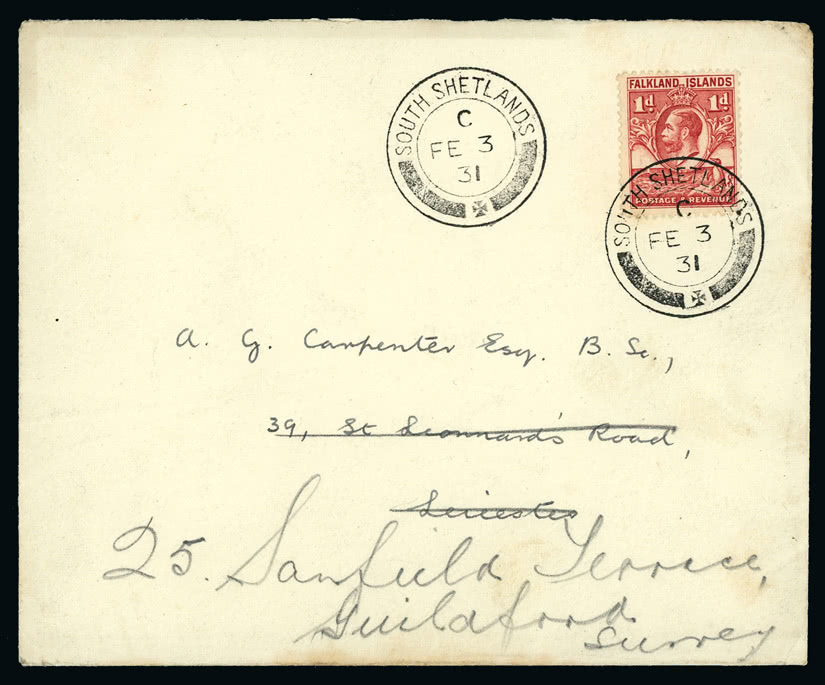 SOUTH SHETLANDS
C
FE 3
31
FALKLAND ISLANDS
1d 1d
POSTAGE & REVENUE
SOUTH SHETLANDS
C
FE 3
31
A. G. Carpenter Esq. B. Sc.,
39, St Leonnard's Road,
Leicester
25. Sanfield Terrace,
Guildford
Surrey